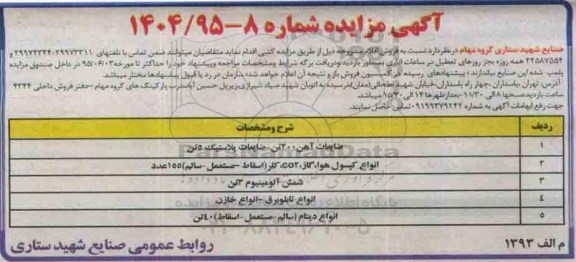 آگهی مزایده شماره ۸-۱۴۰۴/۹۵
صنایع شهید ستاری گروه مهام درنظر دارد نسبت به فروش اقلام مشروحه ذیل از طریق مزایده کتبی اقدام نماید متقاضیان میتوانند ضمن تماس با تلفنهای ۲۹۹۷۳۳۱۱-۲۹۹۷۴۳۴۴ و
۲۲۵۸۷۵۵۴ همه روزه بجز روزهای تعطیل در ساعات اداری بمنظور بازدید و دریافت برگه شرایط ومشخصات مراجعه وپیشنهاد خود را حداکثر تا مورخه ۹۵/۰۶/۰۳ در داخل صندوق مزایده
پلمپ شده این صنایع بیاندازند؛ پیشنهادهای رسیده در کمیسیون فروش باز و نتیجه آن اعلام خواهد شد؛ سازمان در رد یا قبول پیشنهادها مختار میباشد.
آدرس: تهران، پاسداران، چهار راه پاسداران، خیابان شهید نرسیده به اتوبان شهید صیاد شیرازی، پارکینگ های گروه مهام-دفتر فروش داخلی ۴۳۴۴
ساعت بازدید صبحها ۸ الی ۱۱/۳۰ - بعدازظهرها ۱۴ الی ۱۵/۳۰ میباشد.
جهت رفع ابهامات آگهی به شماره ۰۹۱۹۹۳۷۹۲۴۲ تماس حاصل نمایند.
ردیف شرح ومشخصات
۱ ضایعات آهن ۲۰۰تن-ضایعات پلاستیک ۵تن
۲ انواع کپسول هوا، گاز، co2، کلر (اسقاط-مستعمل-سالم) ۱۵۵عدد
۳ شمش آلومینیوم ۳تن
۴ انواع تابلوبرق-انواع خازن
۵ انواع دینام (سالم-مستعمل-اسقاط) ۴۰تن
م الف ۱۳۹۳
روابط عمومی صنایع شهید ستاری